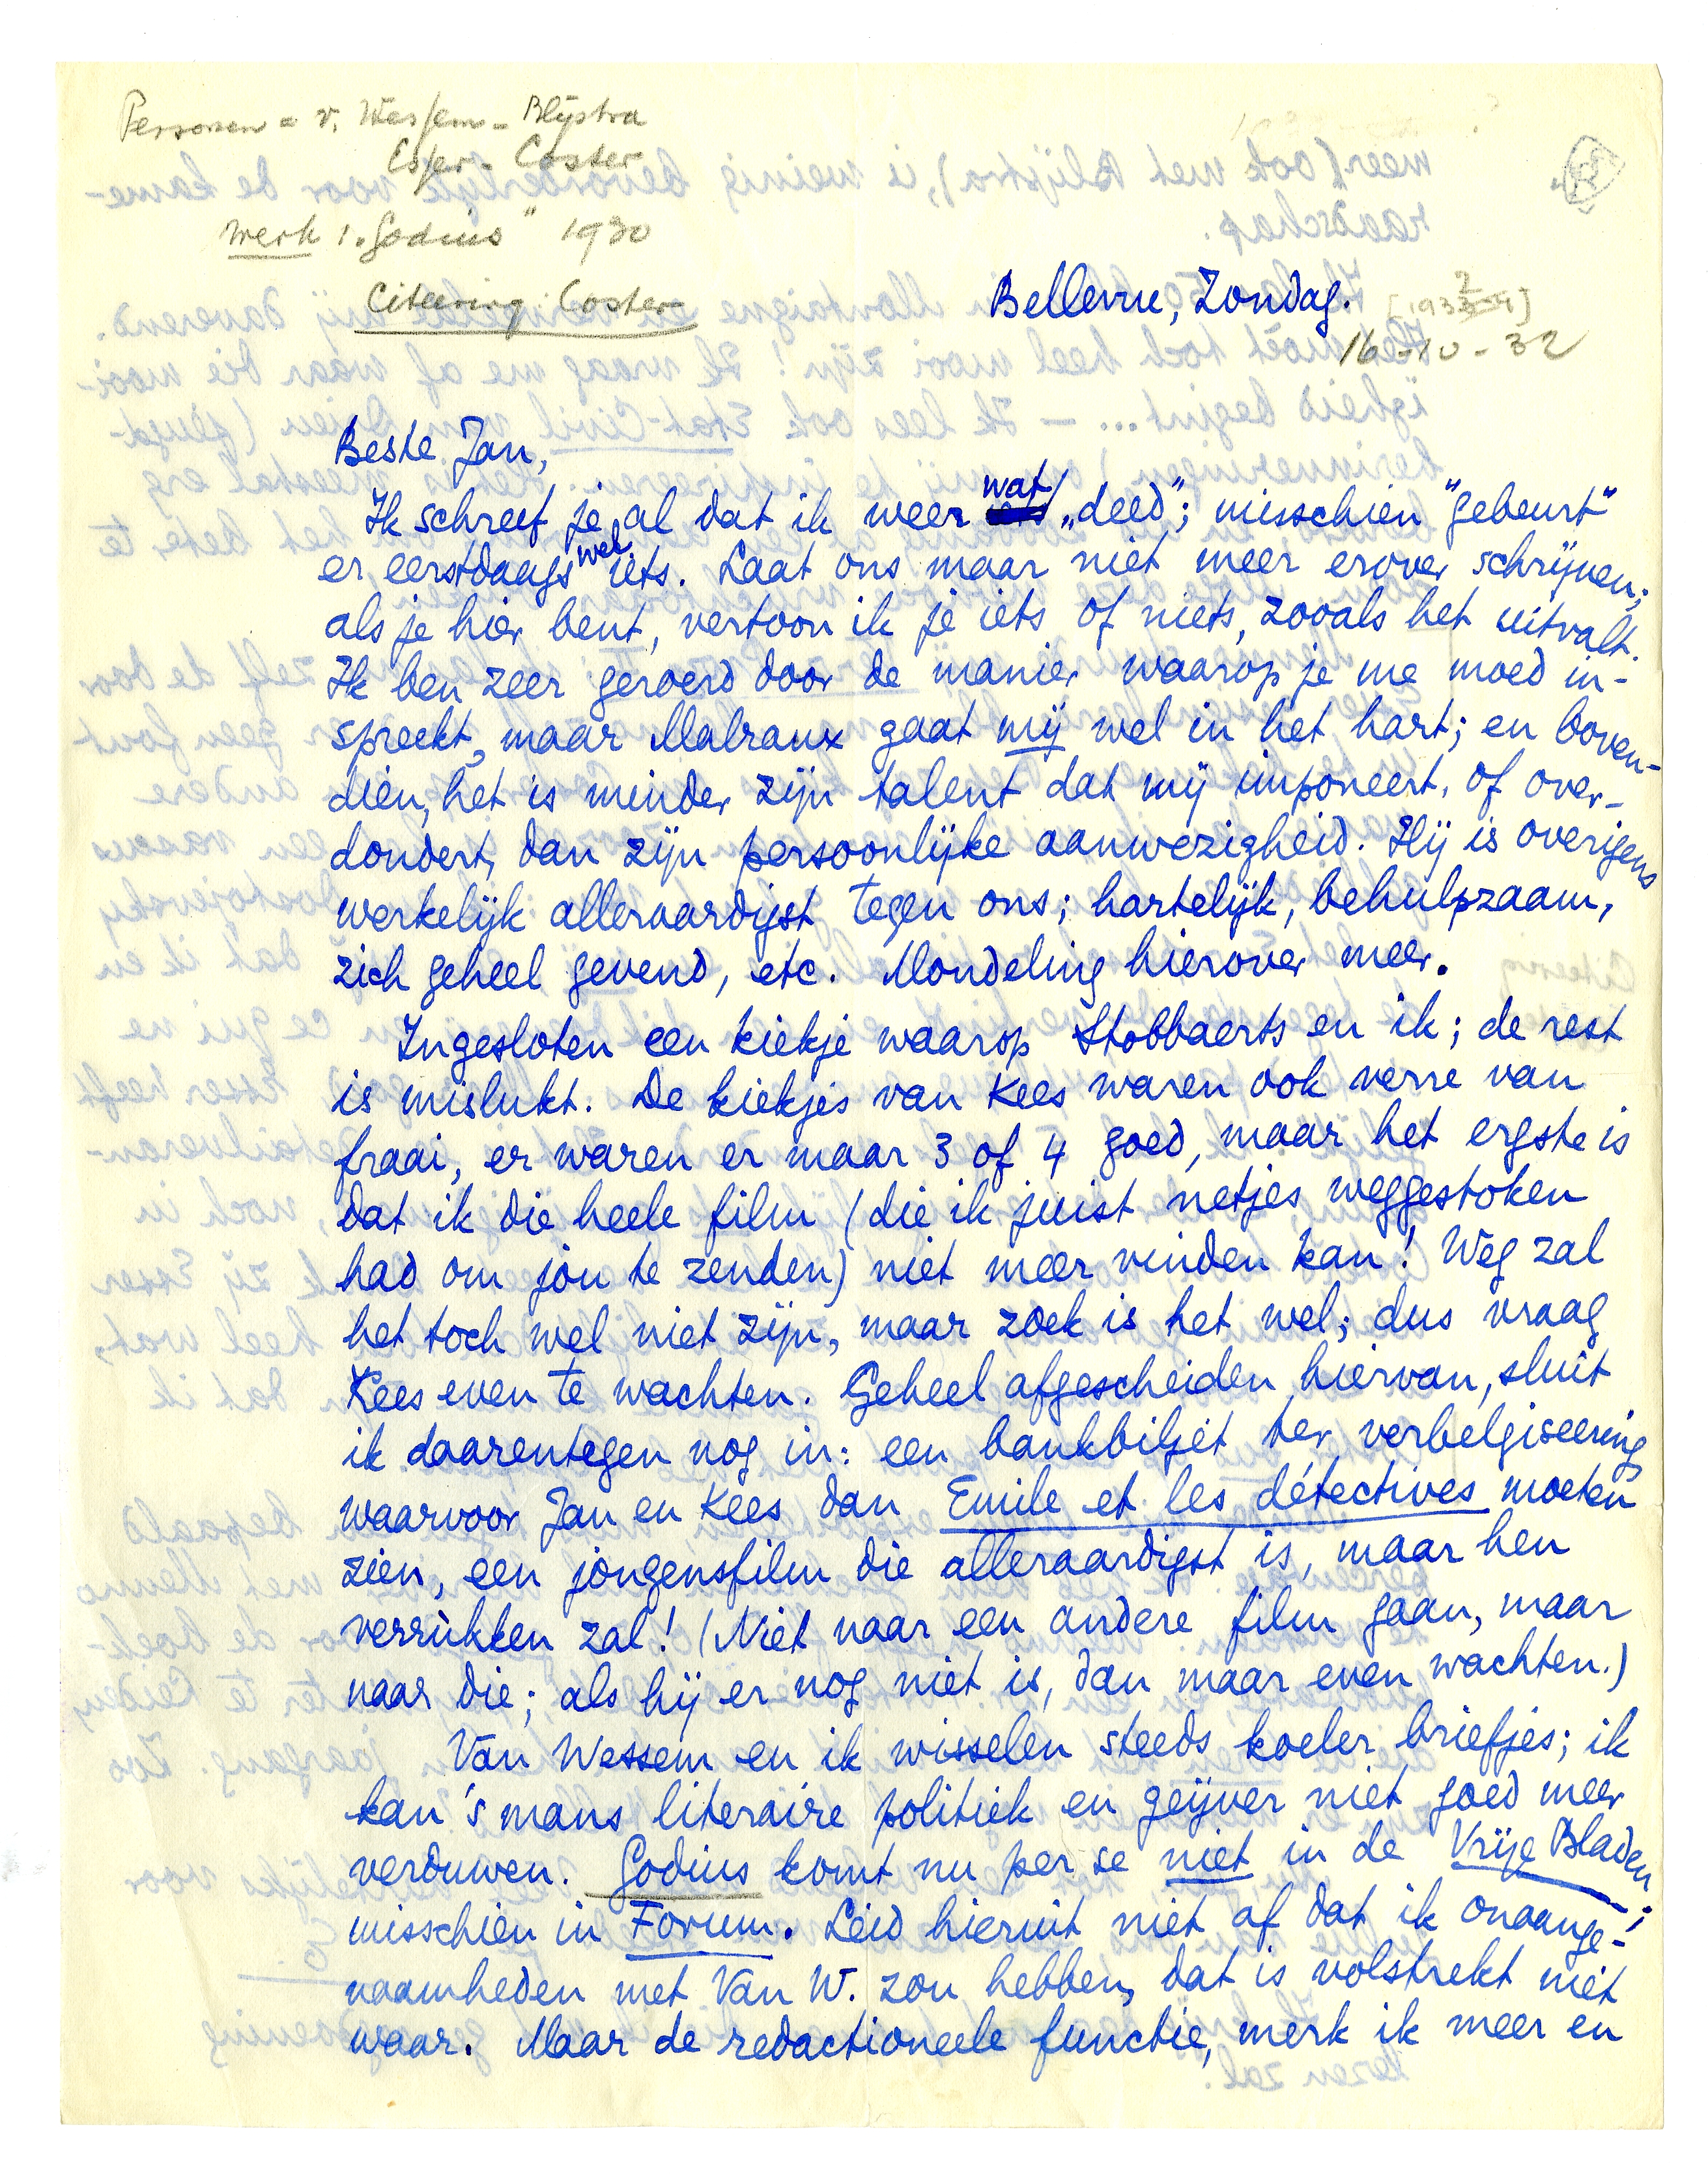 Personen = v. Wessem - Blijstra
Esser - Coster
werk : "Godius" 1930
Citeering: Coster
Bellevue, Zondag.
16-10-32
Beste Jan,
Ik schreef je al dat ik weer wat „deed"; misschien "gebeurt"
er eerstdaags wel iets. Laat ons maar niet meer erover schrijven;
als je hier bent, vertoon ik je iets of niets, zooals het uitvalt.
Ik ben zeer geroerd door de manier waarop je me moed in-
spreekt, maar Malraux gaat mij wel in het hart; en boven-
dien, het is minder zijn talent dat mij imponeert, of over-
dondert, dan zijn persoonlijke aanwezigheid. Hij is overigens
werkelijk alleraardigst tegen ons; hartelijk, behulpzaam,
zich geheel gevend, etc. Mondeling hierover meer.
Ingesloten een kiekje waarop Stobbaerts en ik; de rest
is mislukt. De kiekjes van Kees waren ook verre van
fraai, er waren er maar 3 of 4 goed, maar het ergste is
dat ik die heele film (die ik juist netjes weggestoken
had om jou te zenden) niet meer vinden kan! Weg zal
het toch wel niet zijn, maar zoek is het wel; dus vraag
Kees even te wachten. Geheel afgescheiden hiervan, sluit
ik daarentegen nog in: een bankbiljet ter verbelgiseering
waarvoor Jan en Kees dan Emile et les détectives moeten
zien, een jongensfilm die alleraardigst is, maar hen
verrukken zal! (Niet naar een andere film gaan, maar
naar die; als hij er nog niet is, dan maar even wachten.)
Van Wessem en ik wisselen steeds koeler briefjes; ik
kan 's mans literaire politiek en geijver niet goed meer
verduwen. Godius komt nu per se niet in de Vrije Bladen;
misschien in Forum. Leid hieruit niet af dat ik onaange-
naamheden met Van W. zou hebben, dat is volstrekt niet
waar. Maar de redactioneele functie, merk ik meer en